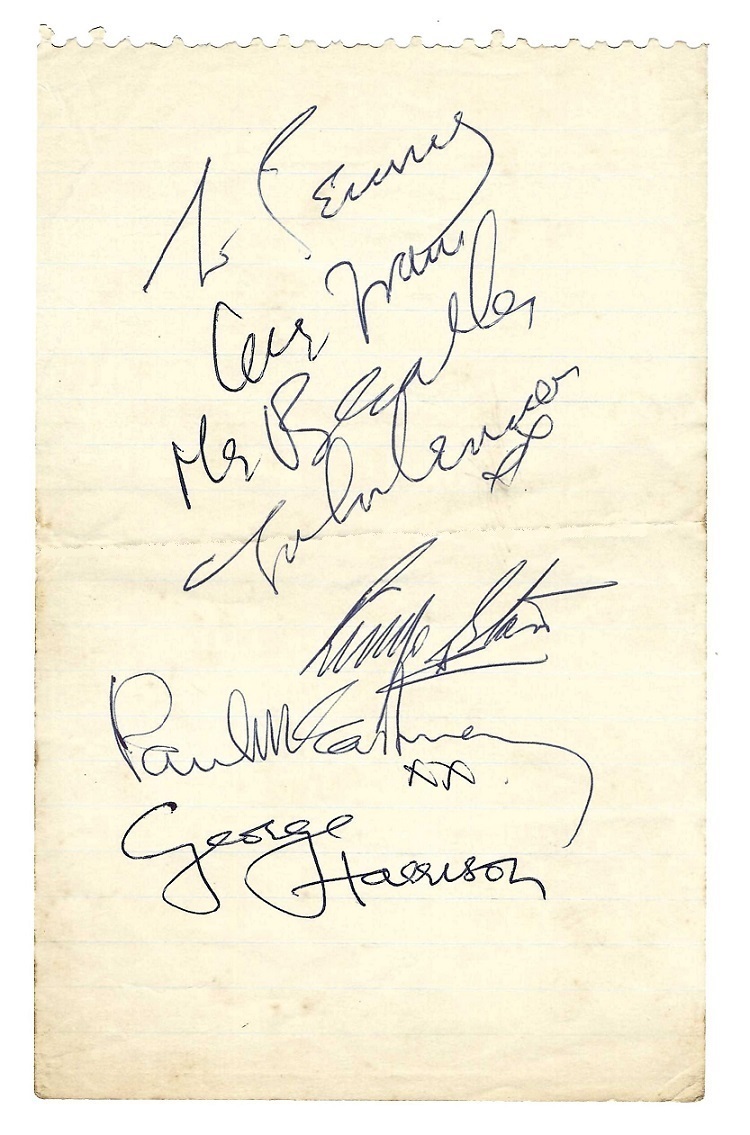 To Penny
love from
The Beatles
John Lennon
x
Ringo Starr
Paul McCartney
xx
George
Harrison